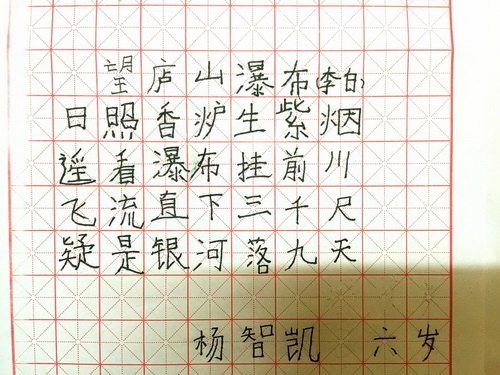 望庐山瀑布李白
日照香炉生紫烟
遥看瀑布挂前川
飞流直下三千尺
疑是银河落九天
杨智凯 六岁